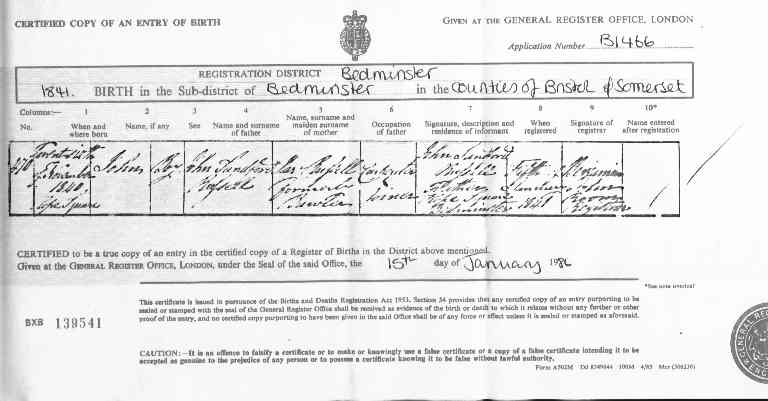 CERTIFIED COPY OF AN ENTRY OF BIRTH
GIVEN AT THE GENERAL REGISTER OFFICE, LONDON
Application Number B1466
REGISTRATION DISTRICT Bedminster
1841. BIRTH in the Sub-district of Bedminster in the Counties of Bristol & Somerset
Columns:— 1 2 3 4 5 6 7 8 9 10*
No. When and where born Name, if any Sex Name and surname of father Name, surname and maiden surname of mother Occupation of father Signature, description and residence of informant When registered Signature of registrar Name entered after registration
270 November 1840 Square
John
Boy
John Sandford Russell
Russell formerly
Carpenter Joiner
John Sandford Russell Father Square Bedminster
Fifth January 1841
Benjamin Registrar
CERTIFIED to be a true copy of an entry in the certified copy of a Register of Births in the District above mentioned.
Given at the GENERAL REGISTER OFFICE, LONDON, under the Seal of the said Office, the 15th day of January 1986
*See note overleaf
This certificate is issued in pursuance of the Births and Deaths Registration Act 1953. Section 34 provides that any certified copy of an entry purporting to be
sealed or stamped with the seal of the General Register Office shall be received as evidence of the birth or death to which it relates without any further or other
proof of the entry, and no certified copy purporting to have been given in the said Office shall be of any force or effect unless it is sealed or stamped as aforesaid.
BXB 139541
CAUTION:—It is an offence to falsify a certificate or to make or knowingly use a false certificate or a copy of a false certificate intending it to be
accepted as genuine to the prejudice of any person or to possess a certificate knowing it to be false without lawful authority.
Form A502M Dd 8349044 100M 4/85 Mcr (306230)